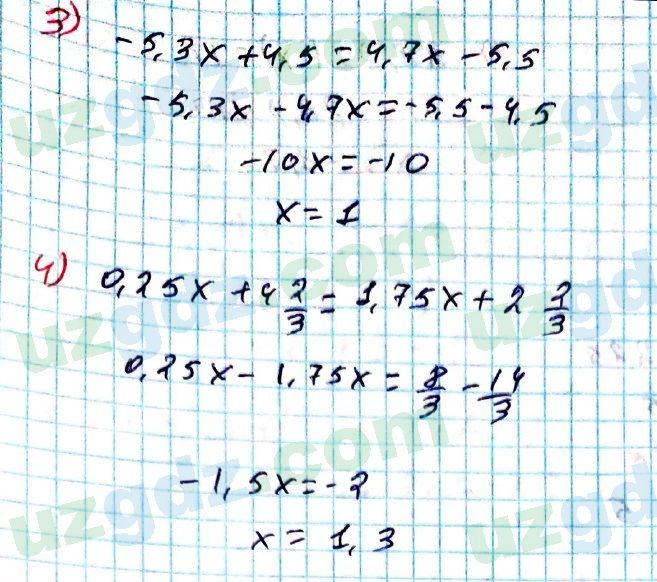 3) -5,3x + 4,5 = 4,7x - 5,5
-5,3x - 4,7x = -5,5 - 4,5
-10x = -10
x = 1
4) 0,25x + 4 2/3 = 1,75x + 2 2/3
0,25x - 1,75x = 8/3 - 14/3
-1,5x = -2
x = 1,3
uzgdz.com